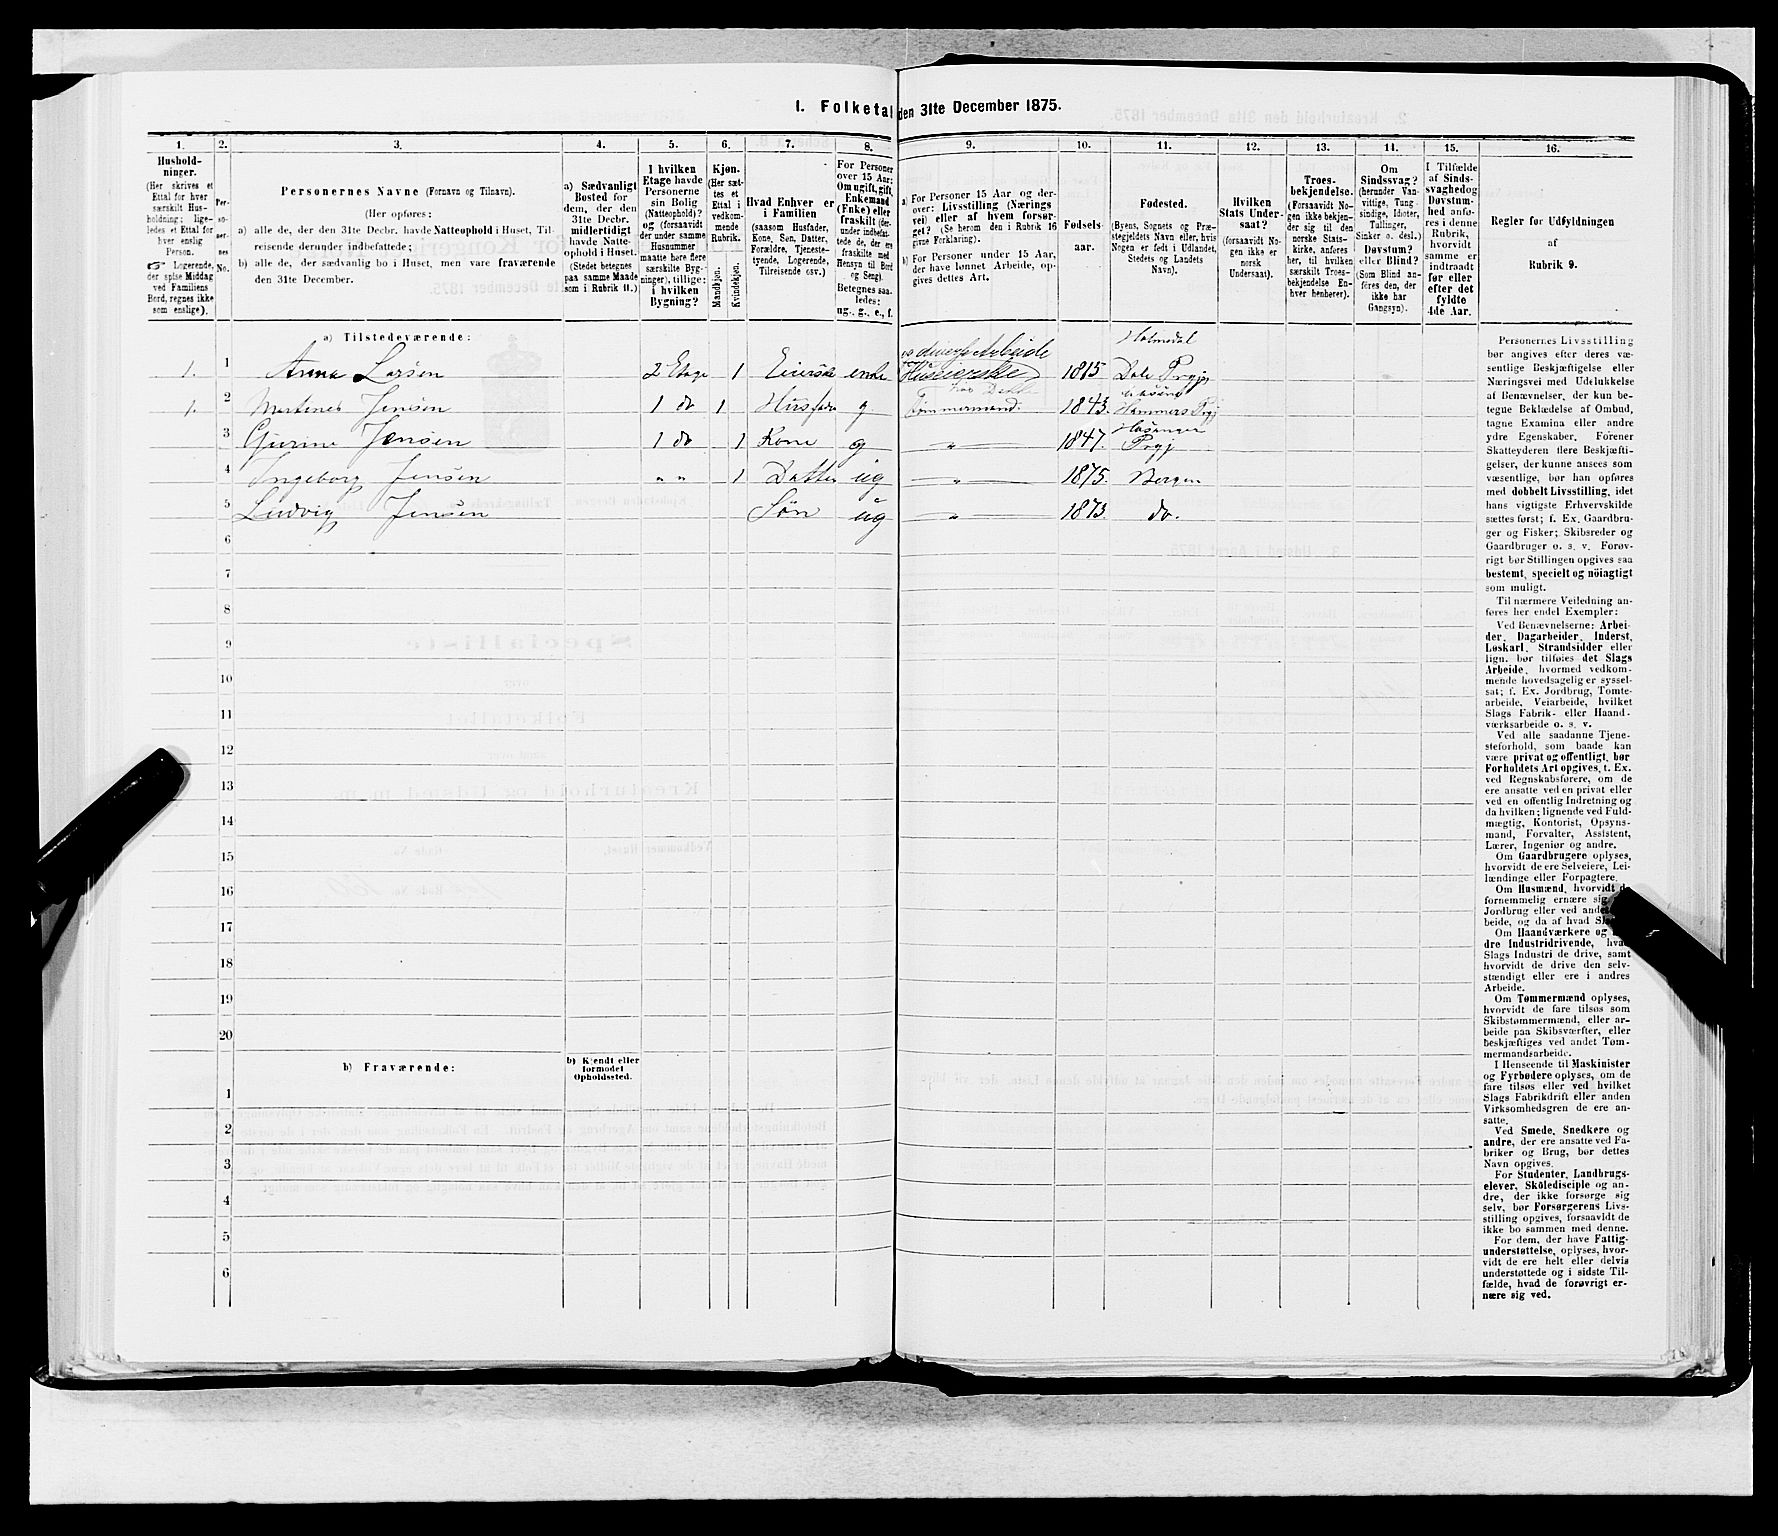 I. Folketal den 31te December 1875.
1. 2. 3. 4. 5. 6. 7. 8. 9. 10. 11. 12. 13. 14. 15. 16.
Hushold-
ninger.
(Her skrives et
Ettal for hver
særskilt Hus-
holdning; lige-
ledes et Ettal for
hver enslig
Person.
☞ Logerende,
der spise Middag
ved Familiens
Bord, regnes ikke
som enslige).
Per-
so-
ner-
nes
No.
Personernes Navne (Fornavn og Tilnavn).
(Her opføres:
a) alle de, der den 31te Decbr. havde Natteophold i Huset, Til-
reisende derunder indbefattede;
b) alle de, der sædvanlig bo i Huset, men vare fraværende
den 31te December.
a) Sædvanligt
Bosted for
dem, der den
31te Decbr.
midlertidigt
havde Natte-
ophold i Huset.
(Stedet betegnes
paa samme Maade
som i Rubrik 11.)
I hvilken
Etage havde
Personerne
sin Bolig
(Natteophold)?
og (forsaavidt
der under samme
Husnummer
maatte høre flere
særskilte Byg-
ninger), tillige:
i hvilken
Bygning?
Kjøn.
(Her sæt-
tes et
Ettal i
vedkom-
mende
Rubrik.
Mandkjøn.
Kvindekjøn.
Hvad Enhver er
i Familien
(saasom Husfader,
Kone, Søn, Datter,
Forældre, Tjeneste-
tyende, Logerende,
Tilreisende osv.)
For Personer
over 15 Aar:
Om ugift, gift,
Enkemand
(Enke) eller
fraskilt (der-
under indbefat-
tede de, der ere
fraskilte med
Hensyn til Bord
og Seng).
Betegnes saa-
ledes:
ug., g., e., f.
a) For Personer 15 Aar og der-
over: Livsstilling (Nærings
vei) eller af hvem forsør-
get? (Se herom den i Rubrik 16
givne Forklaring).
b) For Personer under 15 Aar,
der have lønnet Arbeide, op-
gives dettes Art.
Fødsels-
aar.
Fødested.
(Byens, Sognets og Præ-
stegjeldets Navn eller, hvis
Nogen er født i Udlandet,
Stedets og Landets
Navn).
Hvilken
Stats Under-
saat?
(forsaavidt No-
gen ikke er
norsk
Undersaat).
Troes-
bekjendelse.
(Forsaavidt No-
gen ikke bekjen-
der sig til den
norske Stats-
kirke, anføres
her, til hvilken
særskilt Troes-
bekjendelse En-
hver henhører).
Om
Sindssvag?
(herunder Van-
vittige, Tung-
sindige, Idioter,
Tullinger,
Sinker o. desl.)
Døvstum?
eller Blind?
(Som Blind an-
føres den, der
ikke har
Gangsyn).
I Tilfælde
af Sinds-
svaghed og
Døvstum-
hed anfø-
res i denne
Rubrik,
hvorvidt
samme er
indtraadt
før eller
efter det
fyldte
4de Aar.
Regler før Udfyldningen
af
Rubrik 9.
a) Tilstedeværende:
1. 1 Anna Larsen 2 Etage 1 enke Huseierske diverse Arbeide 1815 Holmedal Dale Prgj
1. 2 Martines Jensen 1 do 1 Husfader g. Tømmermand. 1843. Hammers Prgj
3 Gurine Jensen 1 do 1 Kone g " 1847. Prgj
4 Ingeborg Jensen " " 1 Datter ug " 1875. Bergen
5 Ludvig Jensen Søn ug " 1873. do.
6
7
8
9
10
11
12
13
14
15
16
17
18
19
20
b) Fraværende:
b) Kjendt eller
formodet
Opholdssted.
1
2
3
4
5
6
Personernes Livsstilling
bør angives efter deres væ-
sentlige Beskjæftigelse eller
Næringsvei med Udelukkelse
af Benævnelser, der kun be-
tegne Beklædelse af Ombud,
tagne Examina eller andre
ydre Egenskaber. Forener
Skatteyderen flere Beskjæfti-
gelser, der kunne ansees som
væsentlige, bør han opføres
med dobbelt Livsstilling, idet
hans vigtigste Erhvervskilde
sættes først; f. Ex. Gaardbru-
ger og Fisker; Skibsreder og
Gaardbruger o. s. v. Forøv-
rigt bør Stillingen opgives saa
bestemt, specielt og nöiagtigt
som muligt.
Til nærmere Veiledning an-
føres her endel Exempler:
Ved Benævnelserne: Arbei-
der, Dagarbeider, Inderst,
Løskarl, Strandsidder eller
lign. bør tilføies det Slags
Arbeide, hvormed vedkom-
mende hovedsagelig er syssel-
sat; f. Ex. Jordbrug, Tomte-
arbeide, Veiarbeide, hvilket
Slags Fabrik- eller Haand-
værksarbeide o. s. v.
Ved alle saadanne Tjene-
steforhold, som baade kan
være privat og offentligt, bør
Forholdets Art opgives, t. Ex.
ved Regnskabsførere, om de
ere ansatte ved en privat eller
ved en offentlig Indretning og
da hvilken; lignende ved Fuld-
mægtig, Kontorist, Opsyns-
mand, Forvalter, Assistent,
Lærer, Ingeniør og andre.
Om Gaardbrugere oplyses,
hvorvidt de ere Selveiere, Lei-
lændinge eller Forpagtere.
Om Husmænd, hvorvidt de
fornemmelig ernære sig
Jordbrug eller ved andet
beide, og da af hvad
Om Haandværkere og
dre Industridrivende,
Slags Industri de drive, samt
hvorvidt de drive den selv-
stændigt eller ere i andres
Arbeide.
Om Tømmermænd oplyses,
hvorvidt de fare tilsøs som
Skibstømmermænd, eller ar-
beide paa Skibsværfter, eller
beskjæftiges ved andet Tøm-
mermandsarbeide.
I Henseende til Maskinister
og Fyrbødere oplyses, om de
fare tilsøs eller ved hvilket
Slags Fabrikdrift eller anden
Virksomhedsgren de ere an-
satte.
Ved Smede, Snedkere og
andre, der ere ansatte ved Fa-
briker og Brug, bør dettes
Navn opgives.
For Studenter, Landbrugs-
elever, Skoledisciple og an-
dre, der ikke forsørge sig
selv, bør Forsørgerens Livs-
stilling opgives, forsaavidt de
ikke bo sammen med denne.
For dem, der have Fattig-
understøttelse, oplyses, hvor-
vidt de ere helt eller delvis
understøttede og i sidste Til-
fælde, hvad de forøvrigt er-
nære sig ved.